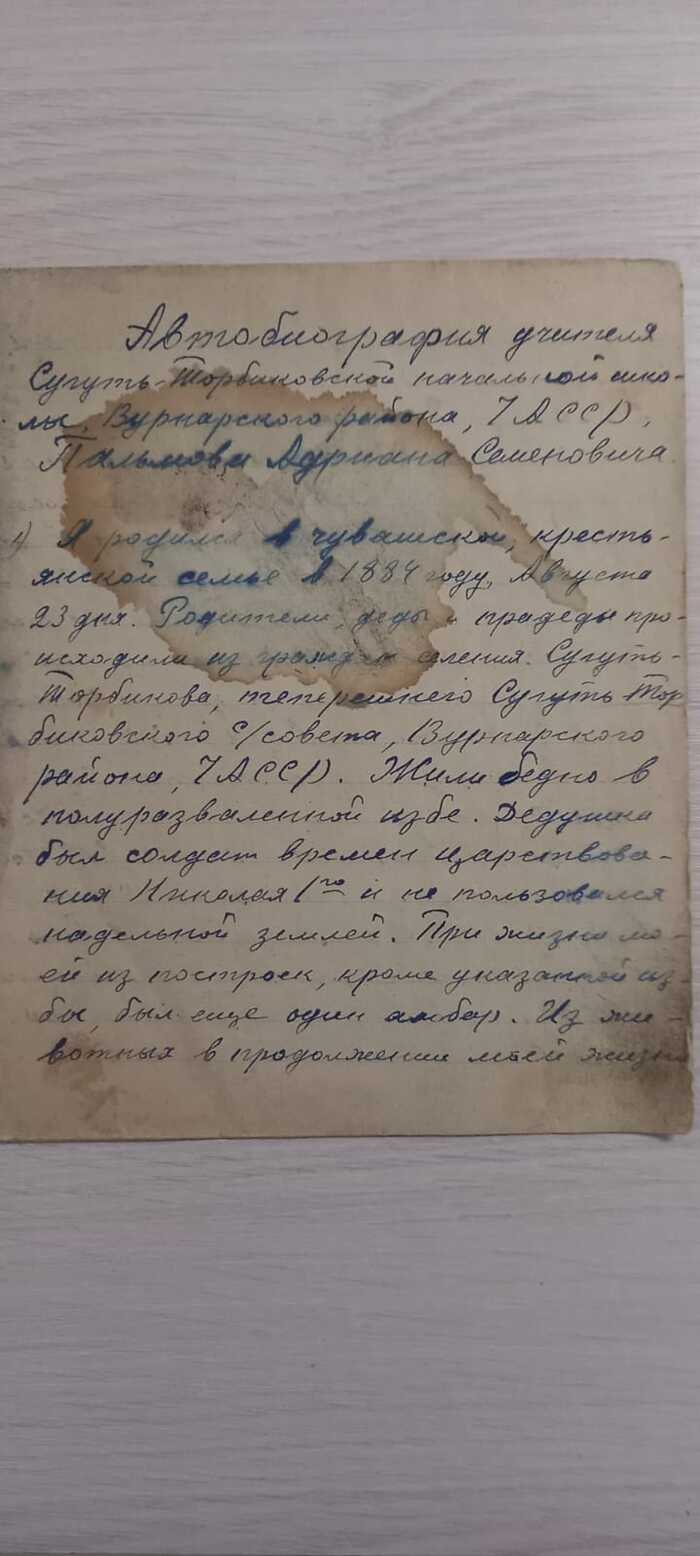 Автобиография учителя
Сугуть-Торбиковской начальной шко-
лы, Вурнарского района, ЧАССР,
Пальмова Адриана Семеновича
1) Я родился в чувашской, кресть-
янской семье в 1884 году, Августа
23 дня. Родители, деды и прадеды про-
исходили из граждан селения. Сугуть-
Торбикова, теперешнего Сугуть-Тор
биковского с/совета, Вурнарского
района, ЧАССР. Жили бедно в
полуразваленной избе. Дедушка
был солдат времен царствова-
ния Николая I го и не пользовался
надельной землей. При жизни мо-
ей из построек, кроме указанной из-
бы, был еще один амбар. Из жи-
вотных в продолжении моей жизни